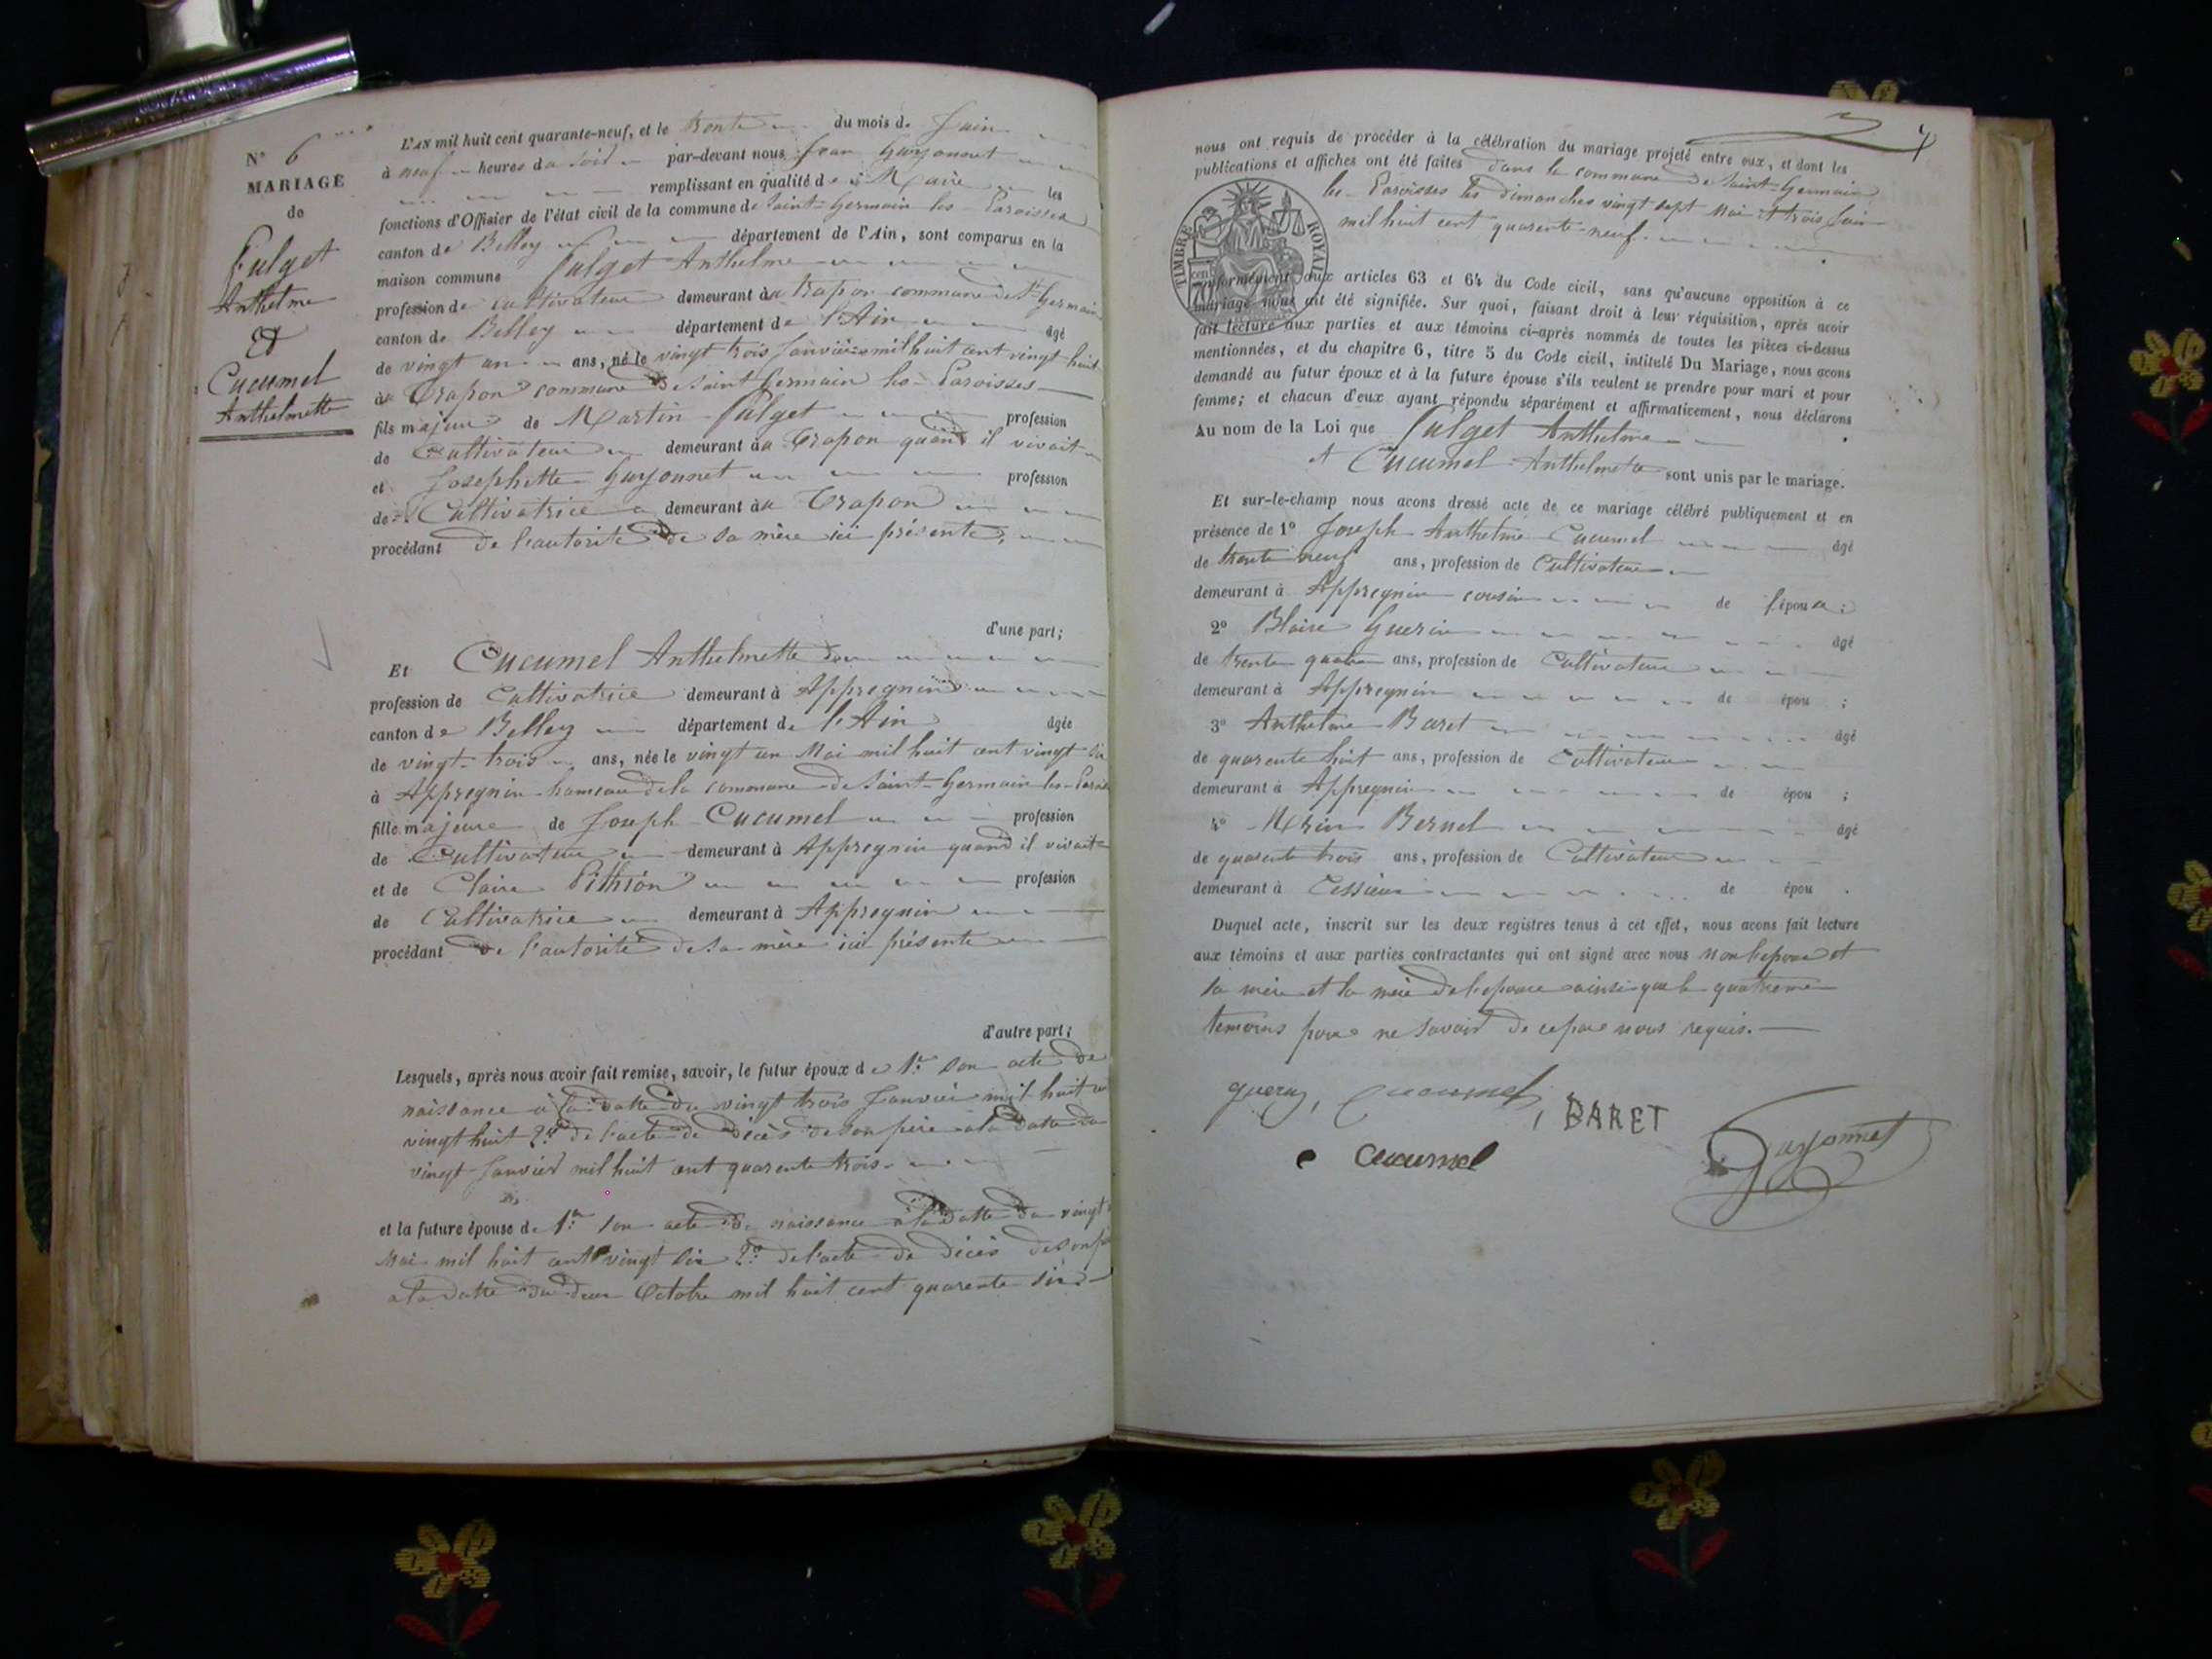 N° 6
MARIAGE
de
Fulget
Anthelme
et
Cucumel
Anthelmette
L'AN mil huit cent quarante-neuf, et le trente du mois de Juin
à neuf heures du soir par-devant nous Jean Guyonnet
remplissant en qualité de Maire les
fonctions d'Officier de l'état civil de la commune de Saint-Germain les-Paroisses
canton de Belley département de l'Ain, sont comparus en la
maison commune Fulget Anthelme
profession de cultivateur demeurant à Trapon commune de St Germain
canton de Belley département de l'Ain âgé
de vingt un ans, né le vingt trois Janvier mil huit cent vingt huit
à Trapon commune de Saint Germain les-Paroisses
fils majeur de Martin Fulget profession
de Cultivateur demeurant à Trapon quand il vivait
et Josephette Guyonnet profession
de Cultivatrice demeurant à Trapon
procédant de l'autorité de sa mère ici présente,
d'une part;
Et Cucumel Anthelmette
profession de Cultivatrice demeurant à Appregnin
canton de Belley département de l'Ain âgée
de vingt-trois ans, née le vingt un Mai mil huit cent vingt six
à Appregnin hameau de la commune de Saint-Germain les-Parois
fille majeure de Joseph Cucumel profession
de Cultivateur demeurant à Appregnin quand il vivait
et de Claire Pithion profession
de Cultivatrice demeurant à Appregnin
procédant de l'autorité de sa mère ici présente
d'autre part;
Lesquels, après nous avoir fait remise, savoir, le futur époux de 1° son acte de
naissance à la datte du vingt trois Janvier mil huit
vingt huit 2° de l'acte de décès de son père à la datte du
vingt Janvier mil huit cent quarente trois.
et la future épouse de 1° son acte de naissance à la datte du vingt
Mai mil huit cent vingt six 2° de l'acte de décès de son
a la datte du deux Octobre mil huit cent quarente six
7
nous ont requis de procéder à la célébration du mariage projeté entre eux, et dont les
publications et affiches ont été faites dans la commune de Saint-Germain
les-Paroisses les Dimanches vingt sept Mai et trois Juin
mil huit cent quarente-neuf.
TIMBRE ROYAL
conformément aux articles 63 et 64 du Code civil, sans qu'aucune opposition à ce
mariage nous ait été signifiée. Sur quoi, faisant droit à leur réquisition, après avoir
fait lecture aux parties et aux témoins ci-après nommés de toutes les pièces ci-dessus
mentionnées, et du chapitre 6, titre 5 du Code civil, intitulé Du Mariage, nous avons
demandé au futur époux et à la future épouse s'ils veulent se prendre pour mari et pour
femme; et chacun d'eux ayant répondu séparément et affirmativement, nous déclarons
Au nom de la Loi que Fulget Anthelme
et Cucumel Anthelmette sont unis par le mariage.
Et sur-le-champ nous avons dressé acte de ce mariage célébré publiquement et en
présence de 1° Joseph Anthelme Cucumel âgé
de trente neuf ans, profession de Cultivateur
demeurant à Appregnin cousin de l'épouse;
2° Blaise Guerin âgé
de trente quatre ans, profession de Cultivateur
demeurant à Appregnin de épou ;
3° Anthelme Baret âgé
de quarente huit ans, profession de Cultivateur
demeurant à Appregnin de épou ;
4° Bernel âgé
de quarente trois ans, profession de Cultivateur
demeurant à Cessieux de épou .
Duquel acte, inscrit sur les deux registres tenus à cet effet, nous avons fait lecture
aux témoins et aux parties contractantes qui ont signé avec nous non l'epoux et
sa mère et la mère de l'epouse ainsi que le quatrieme
temoins pour ne savoir de ce par nous requis.
Guerin, Cucumel, BARET
Cucumel Guyonnet